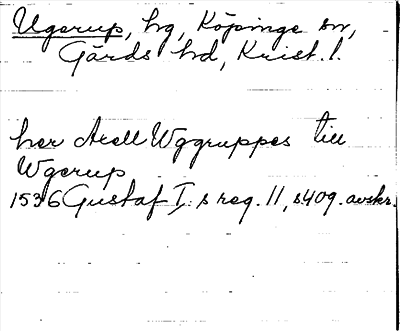 Ugerup, hg, Köpinge sn,
Gärds hd, Krist. l.
her Axell Wggruppes till
Wgerup
1536 Gustaf I:s reg. 11, s 409. avskr.